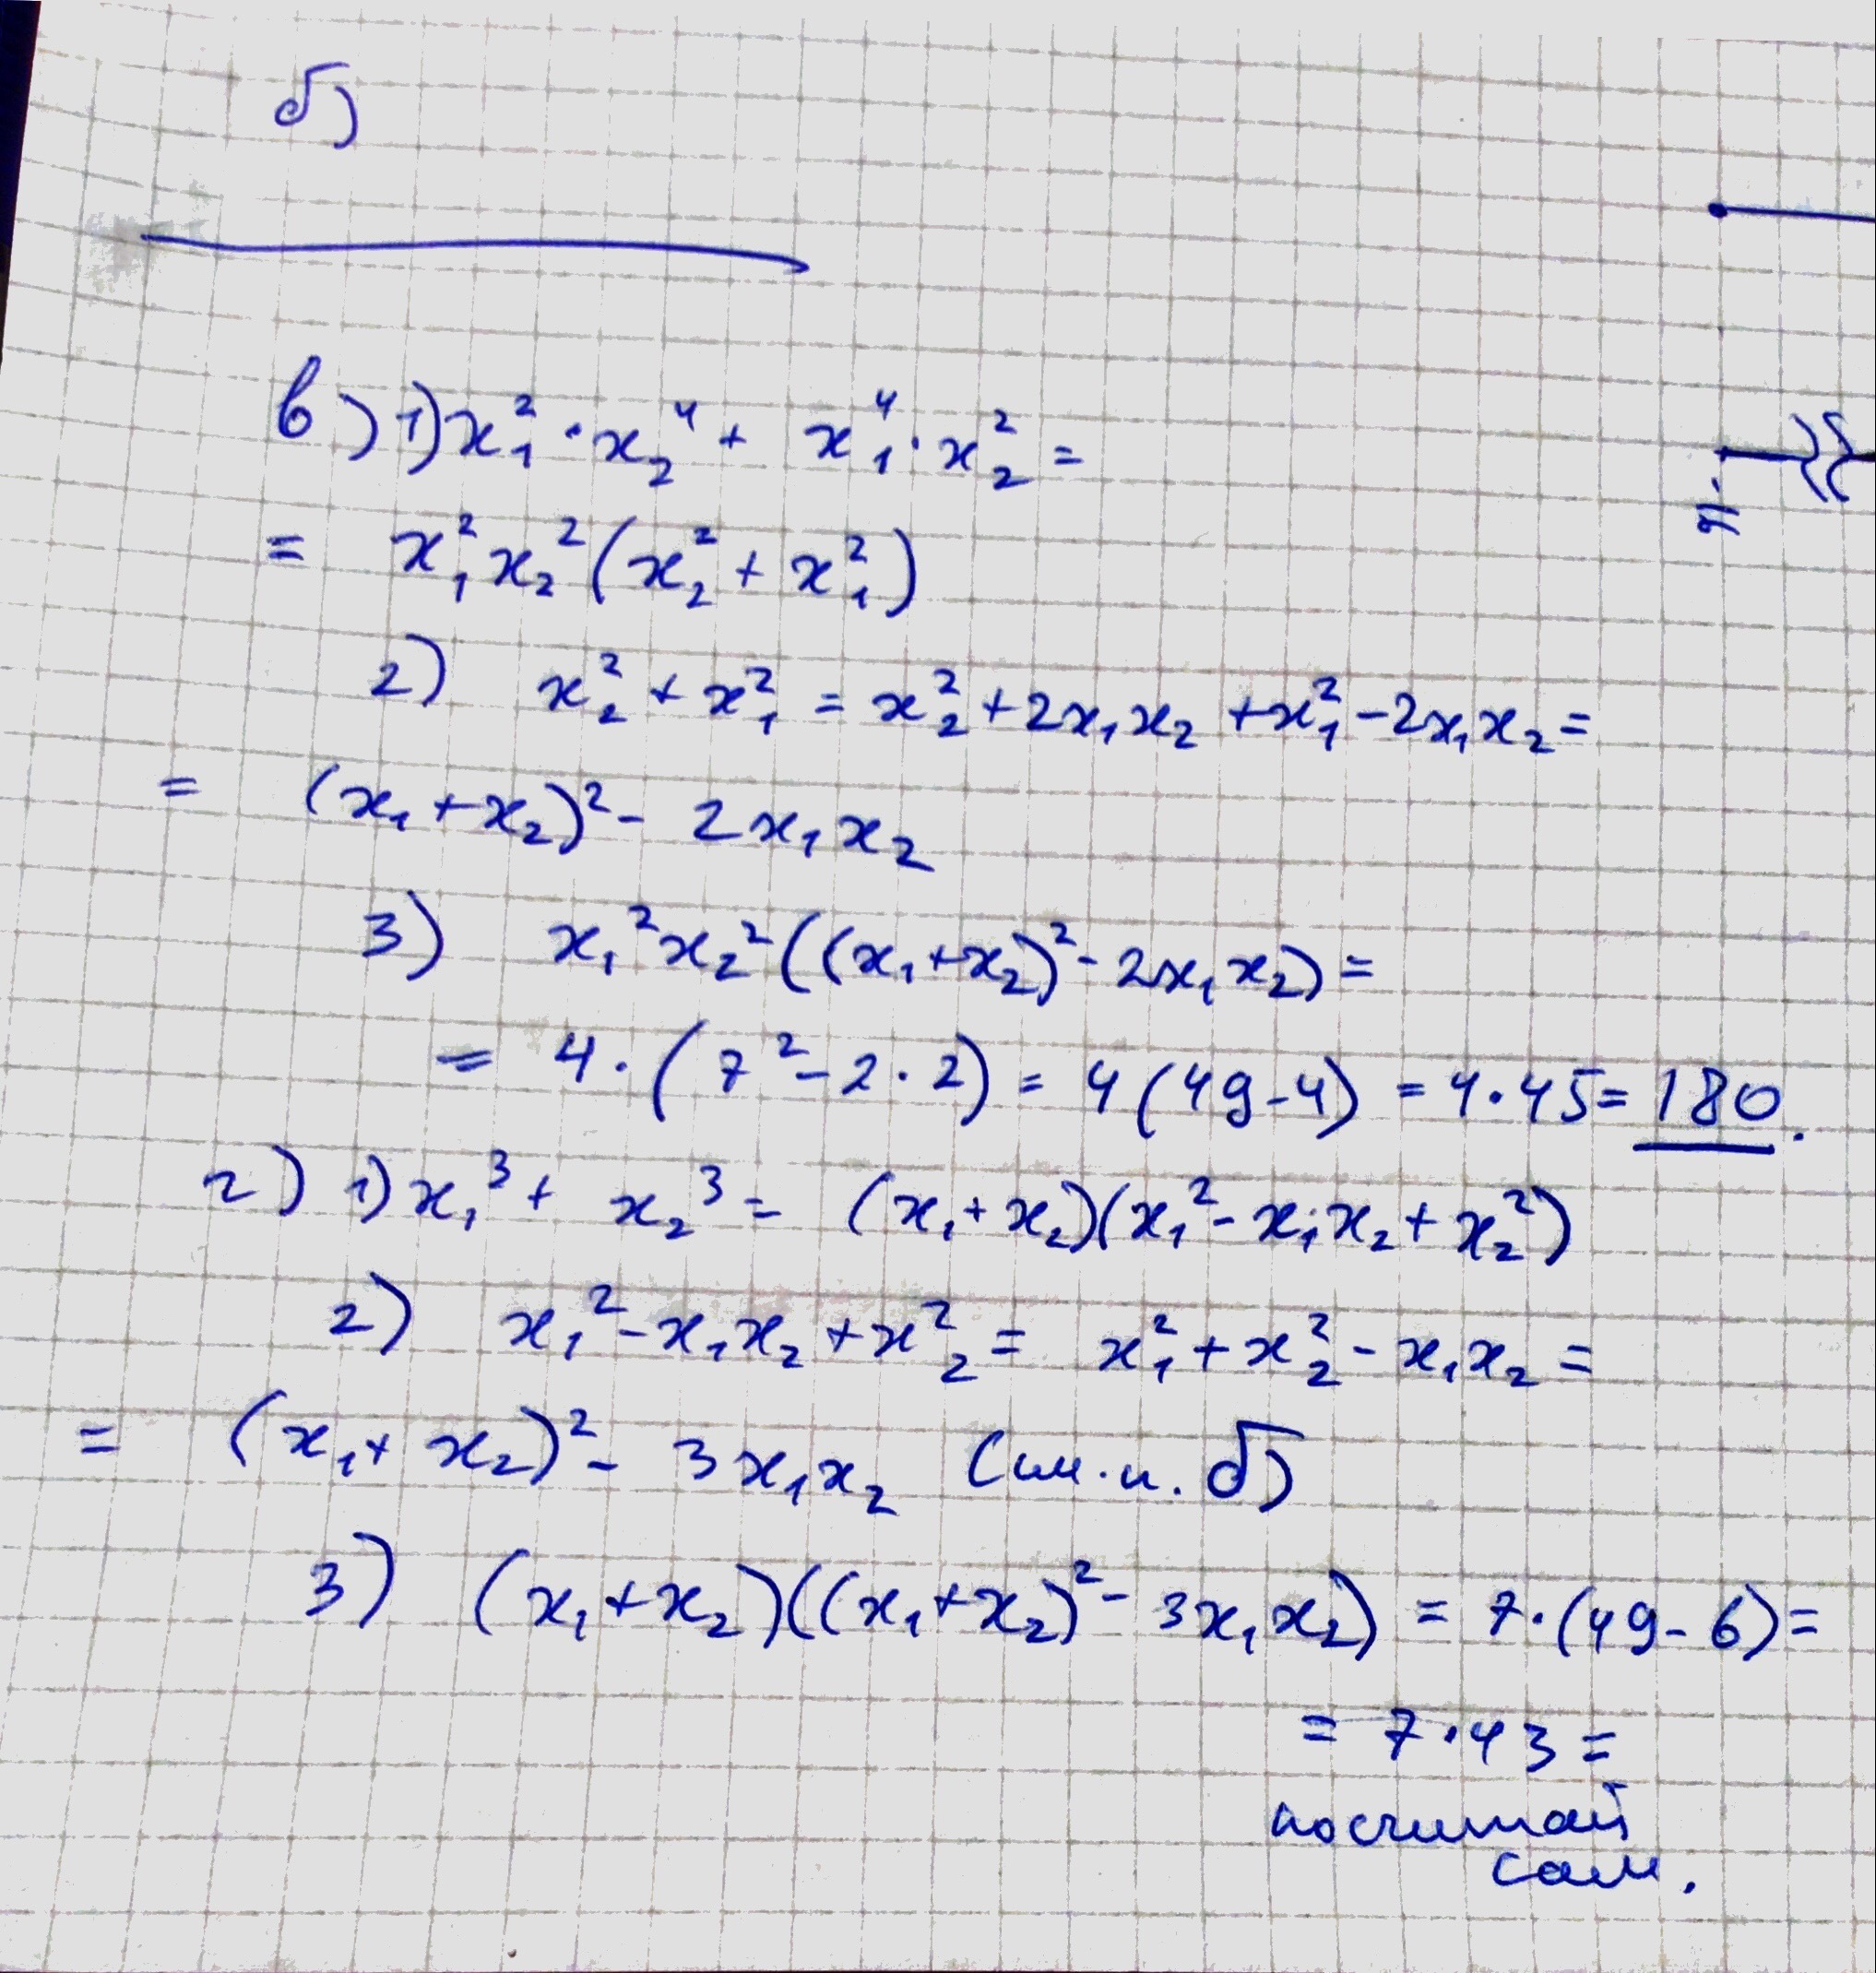 б)
в) 1) x₁² · x₂⁴ + x₁⁴ · x₂² =
= x₁² x₂² (x₂² + x₁²)
2) x₂² + x₁² = x₂² + 2x₁x₂ + x₁² - 2x₁x₂ =
= (x₁ + x₂)² - 2x₁x₂
3) x₁² x₂² ((x₁ + x₂)² - 2x₁x₂) =
= 4 · (7² - 2 · 2) = 4 (49 - 4) = 4 · 45 = 180.
г) 1) x₁³ + x₂³ = (x₁ + x₂)(x₁² - x₁x₂ + x₂²)
2) x₁² - x₁x₂ + x₂² = x₁² + x₂² - x₁x₂ =
= (x₁ + x₂)² - 3x₁x₂ (см. п. б)
3) (x₁ + x₂)((x₁ + x₂)² - 3x₁x₂) = 7 · (49 - 6) =
= 7 · 43 =
посчитай
сам.